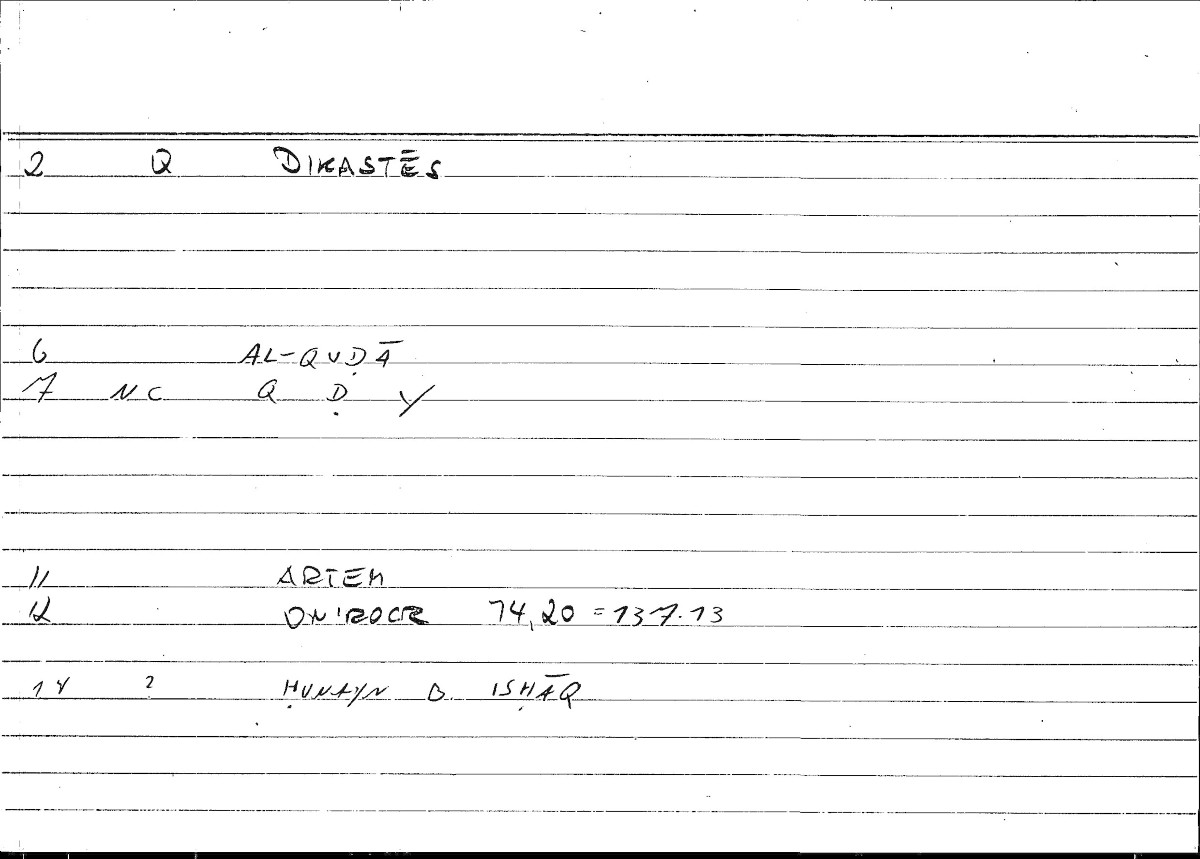 2 Q DIKASTĒS
6 AL-QUḌĀ
7 NC Q Ḍ Y
11 ARTEM
12 ONIROCR 74,20 = 137.13
14 2 ḤUNAYN B ISḤĀQ